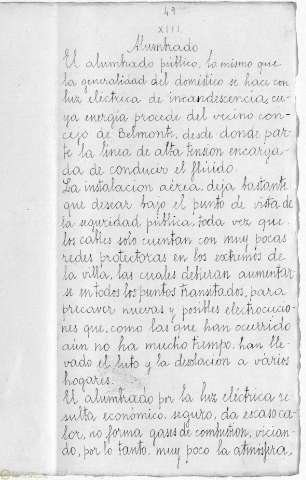 49
XIII.
Alumbrado
El alumbrado público, lo mismo que
la generalidad del doméstico se hace con
luz eléctrica de incandescencia, cu-
ya energía procede del vecino con-
cejo de Belmonte, desde donde par-
te la línea de alta tensión encarga-
da de conducir el flúido.
La instalación aérea, deja bastante
que desear bajo el punto de vista de
la seguridad pública, toda vez que
los cables solo cuentan con muy pocas
redes protectoras en los extremos de
la villa, las cuales deberán aumentar-
se en todos los puntos transitados, para
precaver nuevas y posibles electrocucio-
nes que, como las que han ocurrido
aún no ha mucho tiempo, han lle-
vado el luto y la desolación a varios
hogares.
El alumbrado por la luz eléctrica re-
sulta económico, seguro, da escaso ca-
lor, no forma gases de combustión, vician-
do, por lo tanto, muy poco la atmósfera,